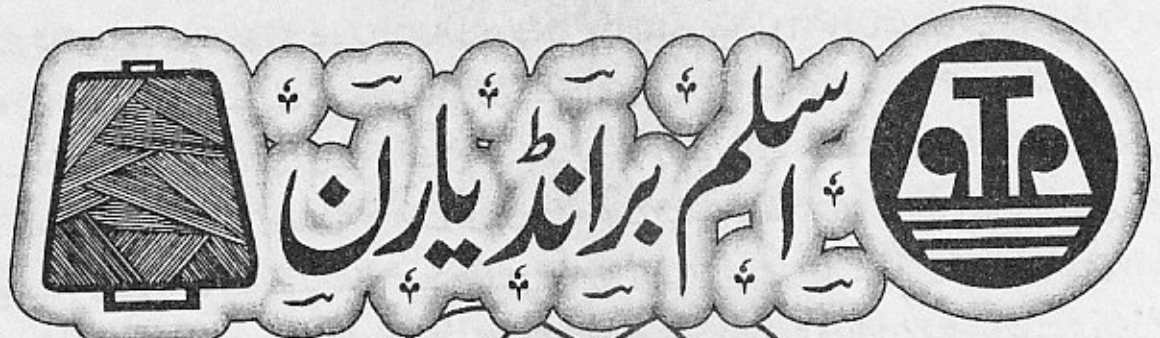 اسلم برانڈ یارن